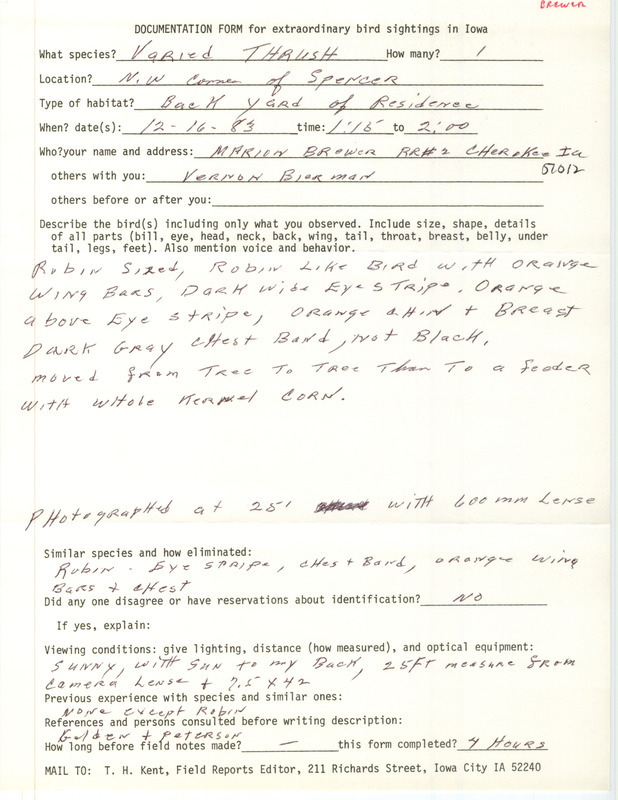 BREWER
DOCUMENTATION FORM for extraordinary bird sightings in Iowa
What species? Varied THRUSH How many? 1
Location? N.W Corner of Spencer
Type of habitat? Back yard of Residence
When? date(s): 12-16-83 time: 1:15 to 2:00
Who?your name and address: MARION BREWER RR#2 CHEROKEE Ia
51012
others with you: VERNON BIERMAN
others before or after you:
Describe the bird(s) including only what you observed. Include size, shape, details
of all parts (bill, eye, head, neck, back, wing, tail, throat, breast, belly, under
tail, legs, feet). Also mention voice and behavior.
Robin Sized, Robin Like Bird with orange
wing Bars, Dark wide Eye STripe. Orange
above Eye stripe, orange chin + Breast
Dark Gray Chest Band, not Black.
moved from Tree To Tree Than To a feeder
with whole Kernel corn.
PHotographed at 25' with 600 mm Lense
Similar species and how eliminated:
Robin - Eye stripe, chest Band, orange wing
Bars + chest
Did any one disagree or have reservations about identification? NO
If yes, explain:
Viewing conditions: give lighting, distance (how measured), and optical equipment:
Sunny, with Sun to my Back, 25 FT measure from
Camera Lense + 7.5 X 42
Previous experience with species and similar ones:
None except Robin
References and persons consulted before writing description:
Golden + Peterson
How long before field notes made? — this form completed? 4 Hours
MAIL TO: T. H. Kent, Field Reports Editor, 211 Richards Street, Iowa City IA 52240